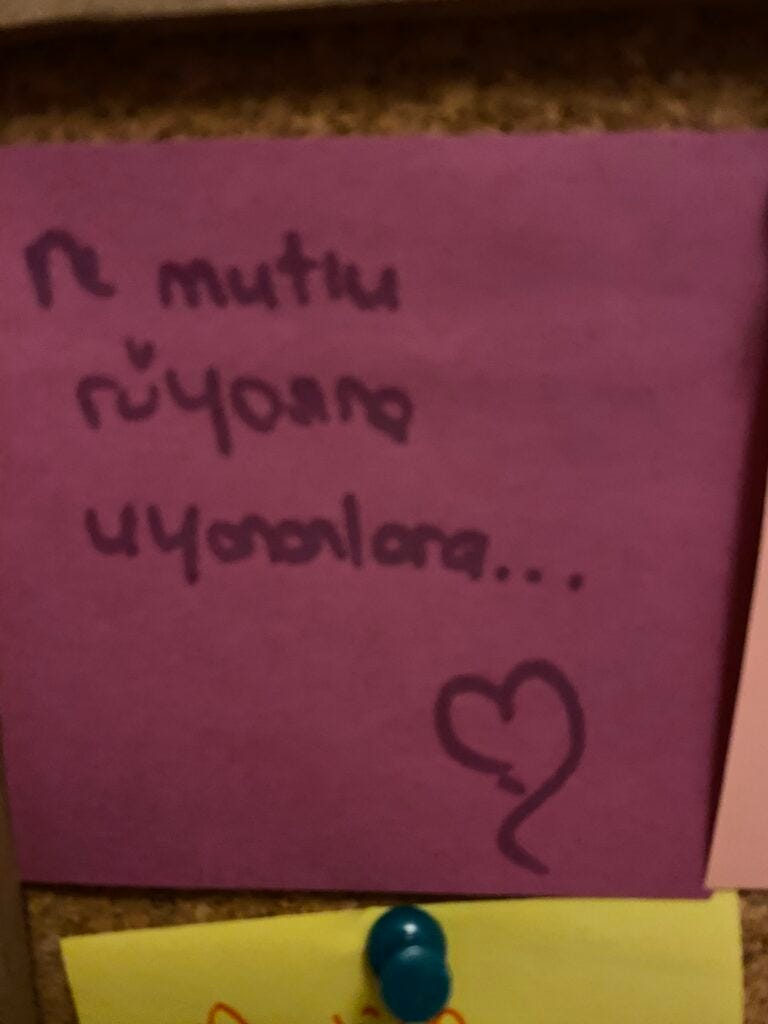 ne mutlu
rüyasına
uyananlara...